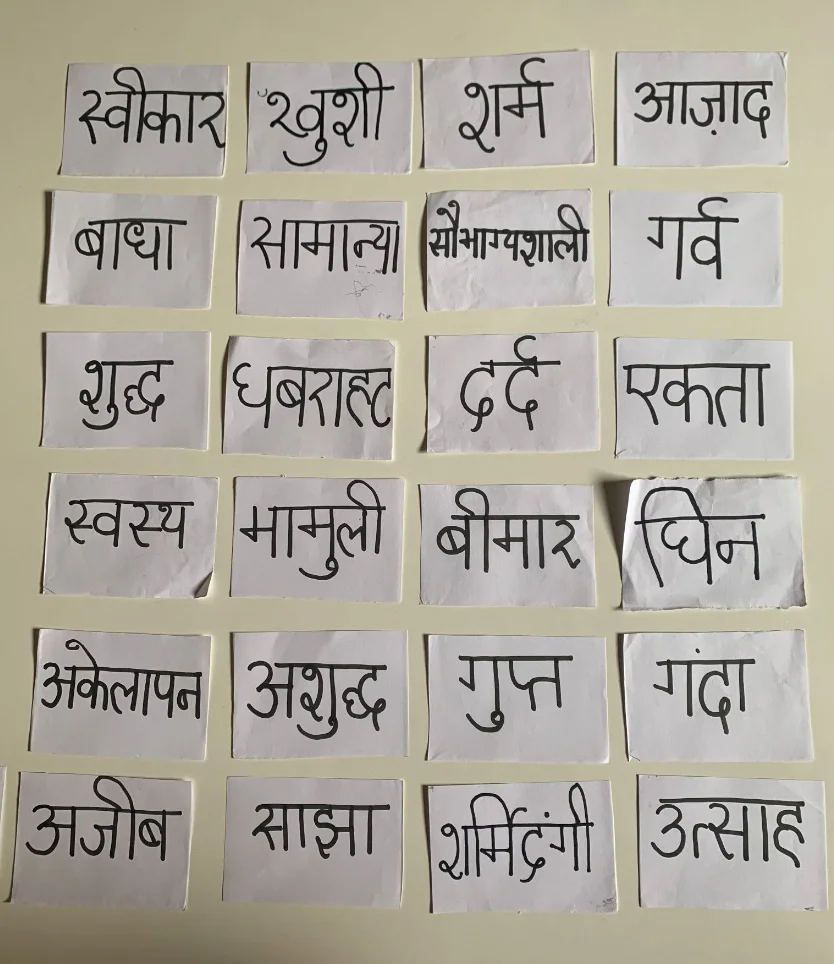 स्वीकार खुशी शर्म आज़ाद
बाधा सामान्या सौभाग्यशाली गर्व
शुद्ध घबराहट दर्द एकता
स्वस्थ मामुली बीमार घिन
अकेलापन अशुद्ध गुप्त गंदा
अजीब साझा शर्मिदंगी उत्साह